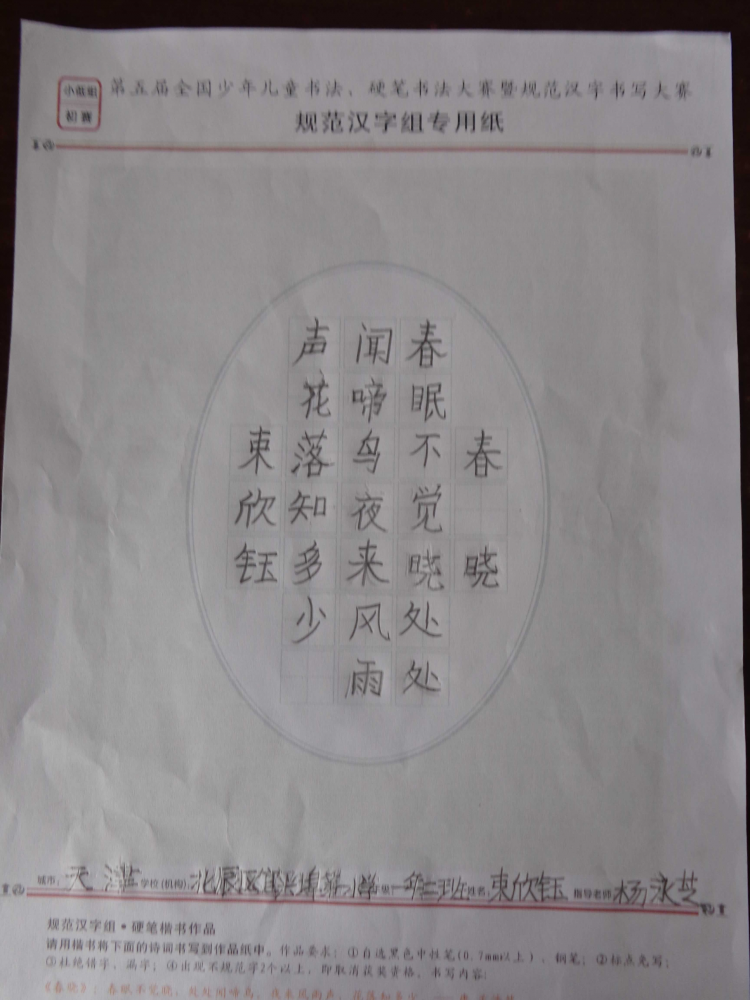 小低组
初赛
第五届全国少年儿童书法、硬笔书法大赛暨规范汉字书写大赛
规范汉字组专用纸
春晓
春眠不觉晓处处
闻啼鸟夜来风雨
声花落知多少
束欣钰
城市:天津 学校(机构):北辰区 小学 班 姓名:束欣钰 指导老师 杨永芝
规范汉字组·硬笔楷书作品
请用楷书将下面的诗词书写到作品纸中。作品要求:①自选黑色中性笔(0.7mm以上)、钢笔;②标点免写;
③杜绝错字、漏字;④出现不规范字2个以上,即取消获奖资格。书写内容:
《春晓》:春眠不觉晓,处处闻啼鸟。夜来风雨声,花落知多少。